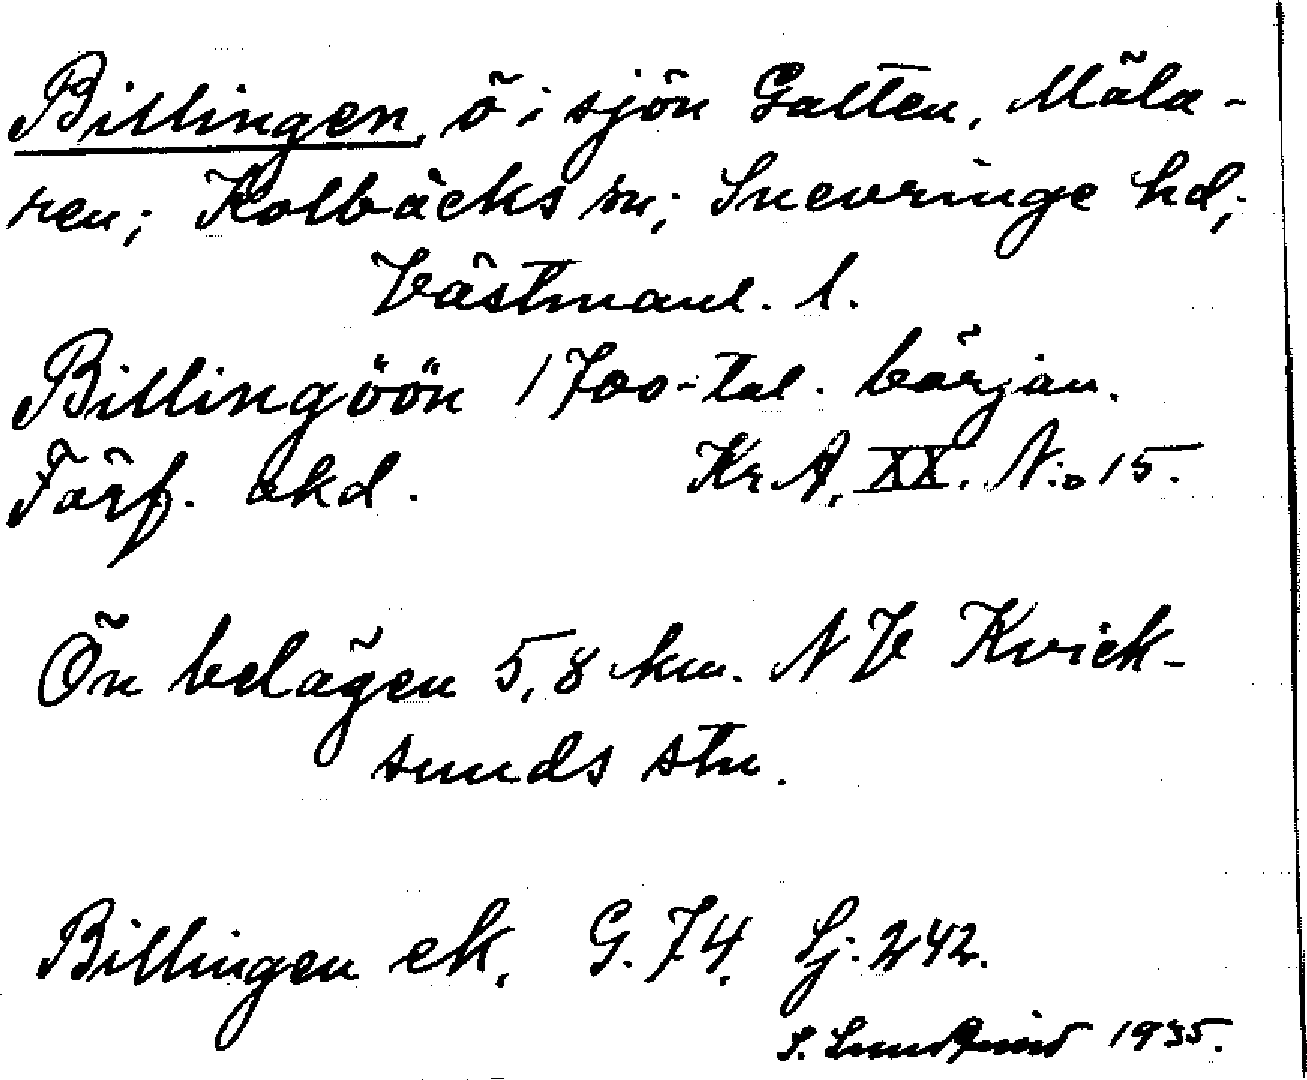 Billingen, ö i sjön Galten, Mäla-
ren; Kolbäcks sn; Snevringe hd;
Västmanl. l.
Billingöön 1700-tal. början.
Förf. okd. Kr. A. XX. N:o 15.
Ön belägen 5,8 km. NV Kvick-
sunds stn.
Billingen ek. G. 74. Lj. 242.
S. Lundqvist 1935.